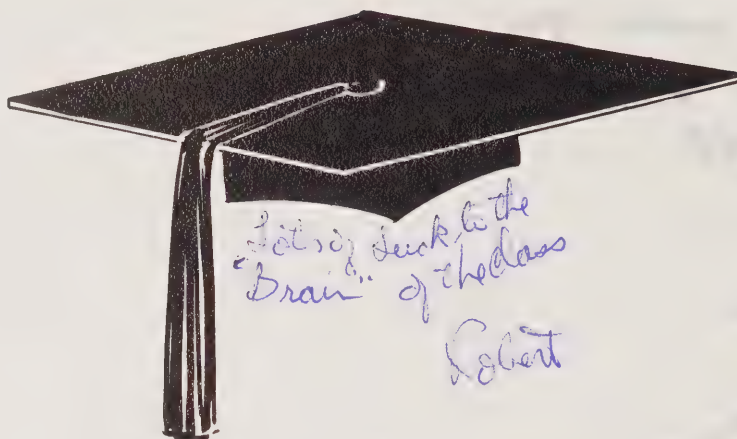 Lots of Luck to the
"Brain" of the Class
Robert